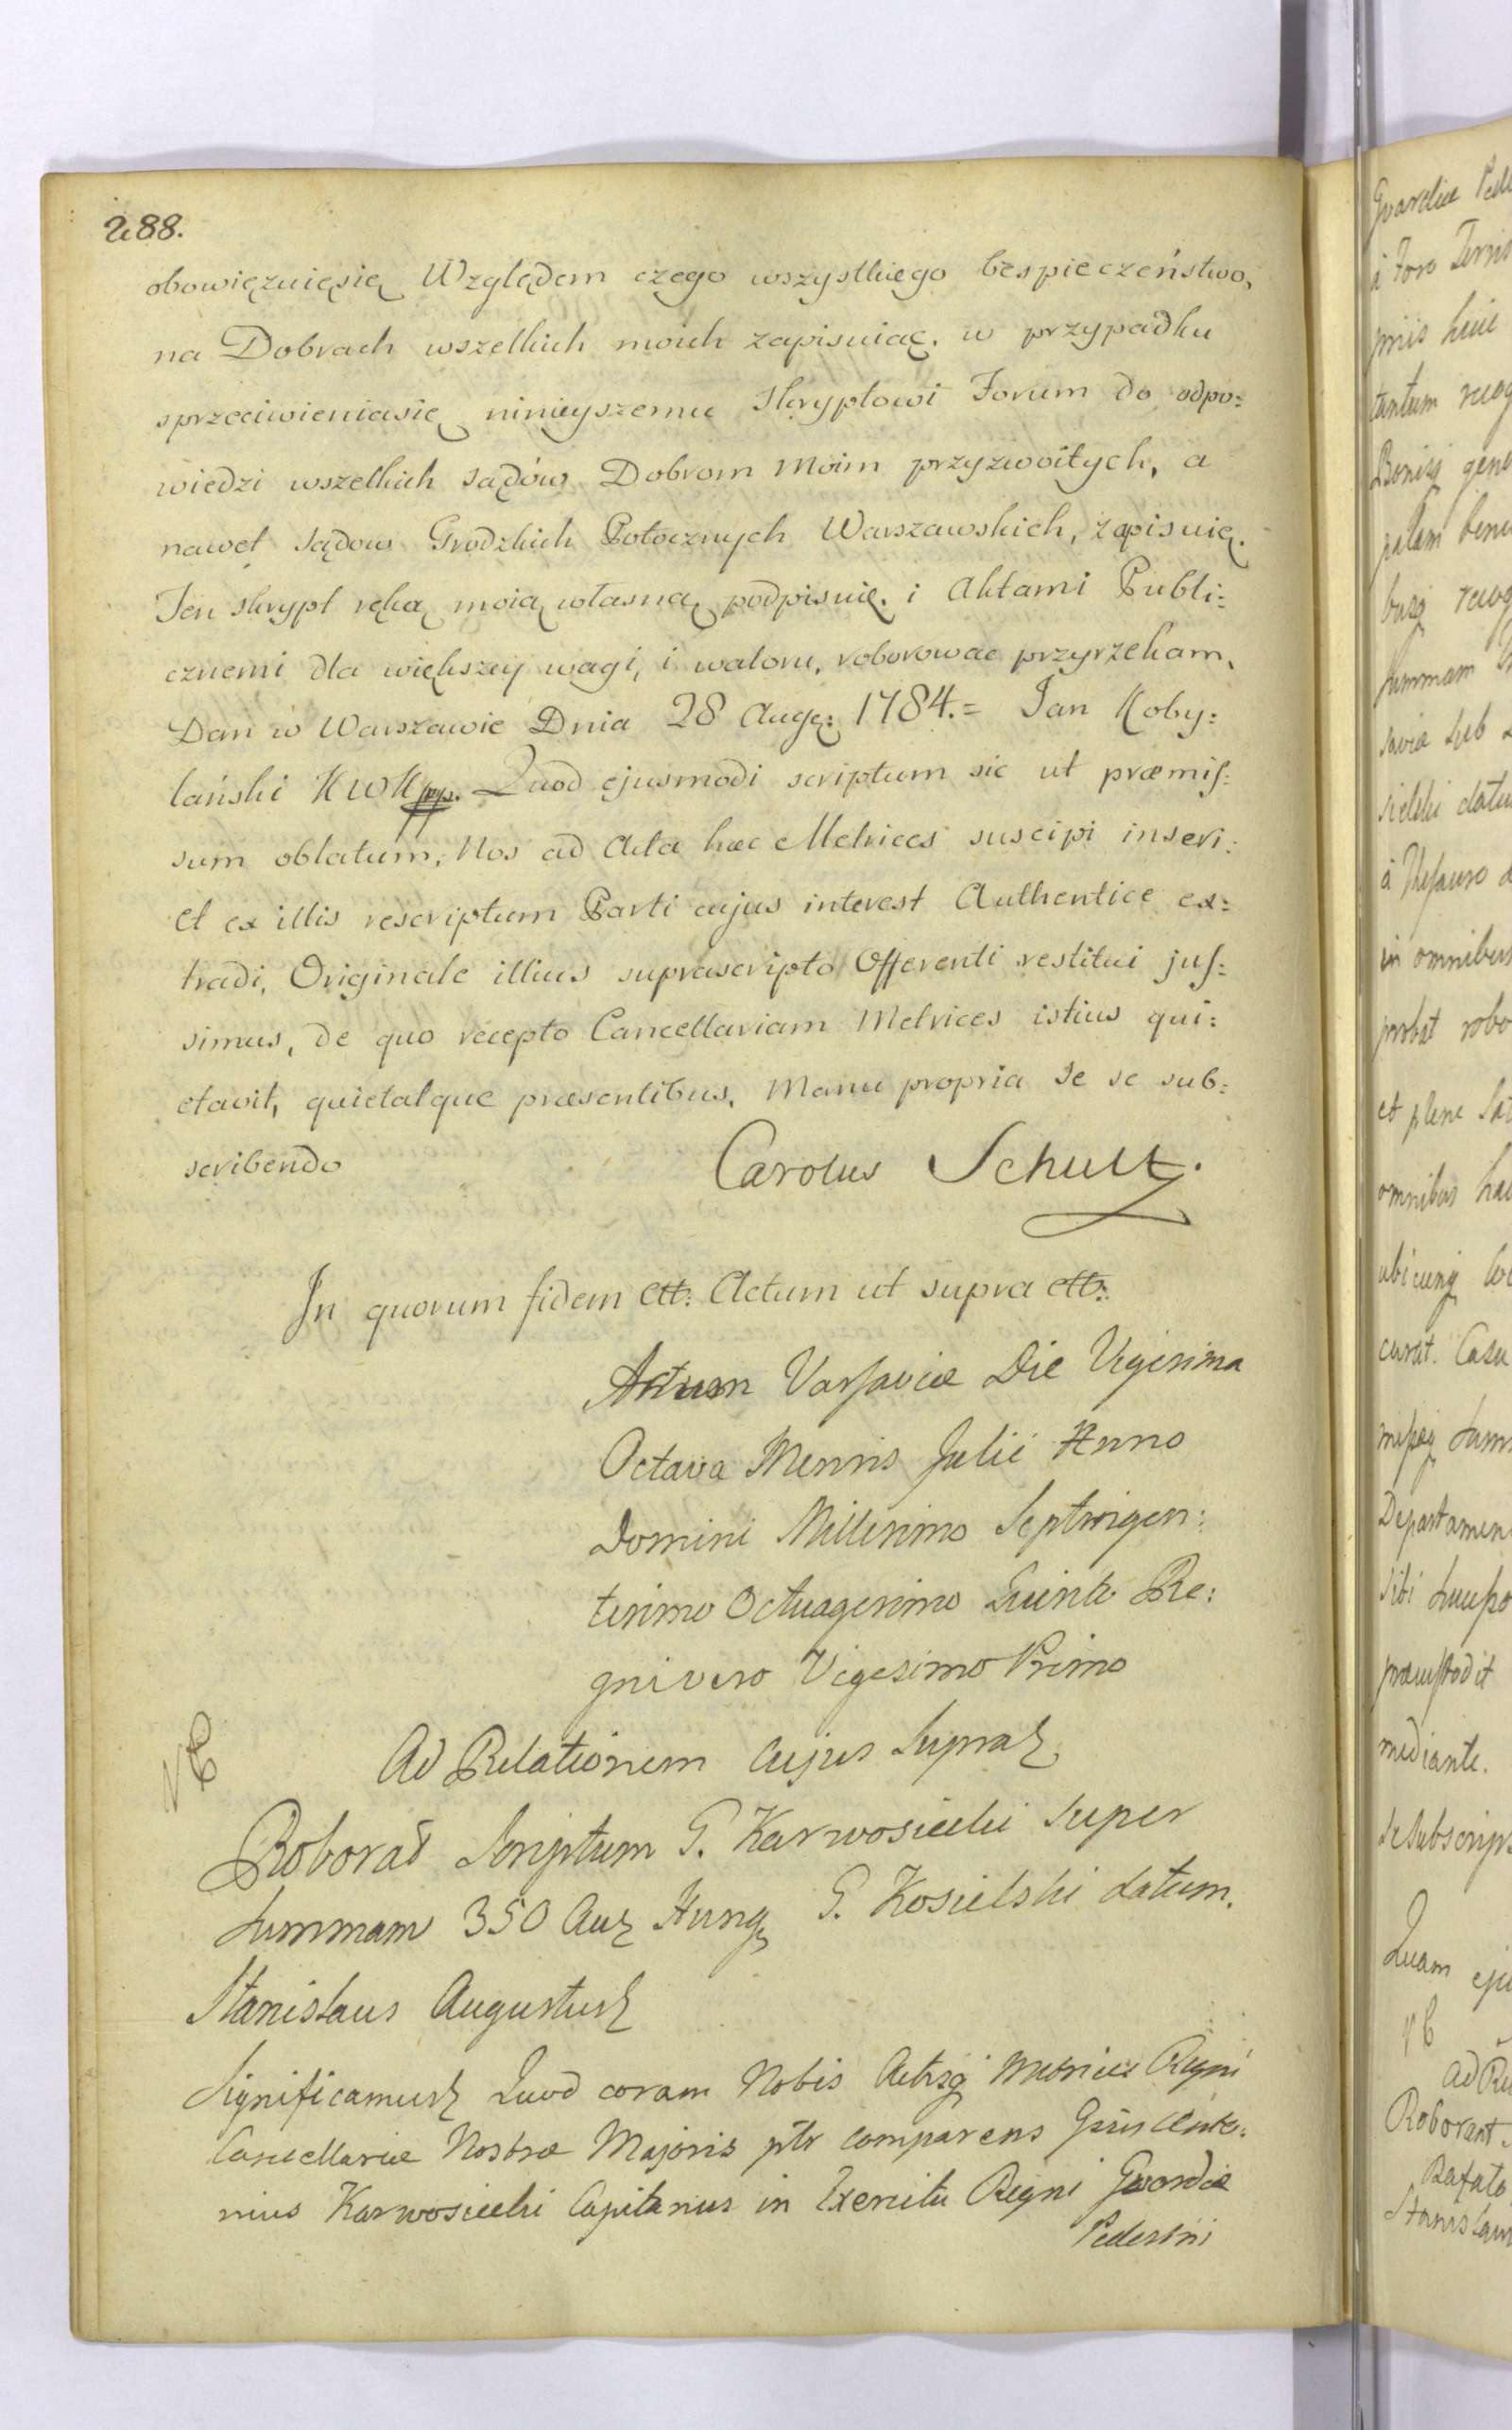 288.
obowięzuięsię Względem czego wszystkiego bespieczeństwo,
na Dobrach wszelkich moich zapisuiąc. w przypadku
sprzeciwieniasię ninieyszemu Skryptowi Forum do odpo:
wiedzi wszelkich sądów Dobrom Moim przyzwoitych, a
nawet sądow Grodzkich Potocznych Warszawskich, zapisuię.
Ten skrypt ręką moią własną podpisuię. i Aktami Publi:
cznemi dla większey wagi, i waloru, roborowac przyrzekam,
Dan w Warszawie Dnia 28 Augę: 1784.= Jan Koby:
lański KWK mpp. Quod ejusmodi scriptum sic ut præmis:
sum oblatum, Nos ad Acta hæc Metrices suscipi inseri:
et ex illis rescriptum Parti cujus interest Authentice ex:
tradi, Originale illius suprascripto Offerenti restitui jus:
simus, de quo recepto Cancellariam Metrices istius qui:
etavit, quietatque præsentibus. Manu propria se se sub:
scribendo
Carolus Schultz.
In quorum fidem ett: Actum ut supra ett:
Actum Varsaviæ Die Vigesima
Octava Mensis Julii Anno
Domini Millesimo Septingen:
tesimo Octuagesimo Quinto Re:
gni vero Vigesimo Primo
Ad Relationem cujus Supra
Roborat Scriptum G. Karwosiecki super
Summam 350 Aur Hung G. Kosielski datum.
Stanislaus Augustus
Significamus Quod coram Nobis Actisq Metrices Regni
Cancellariæ Nostræ Majoris ptr comparens Gsus Anto:
nius Karwosiecki Capitanus in Exercitu Regni Gwardiæ
Pedestris
Gvardiæ
à Foro
huic
tantum
Bonisq
palam
Summam
sub
datu
à Thesauro
in omnibus
probat
et plene
omnibus
ubicunq
curat. Casu
Departamen
sibi
mediante.
Quam
VC
Roborant.
Rafało